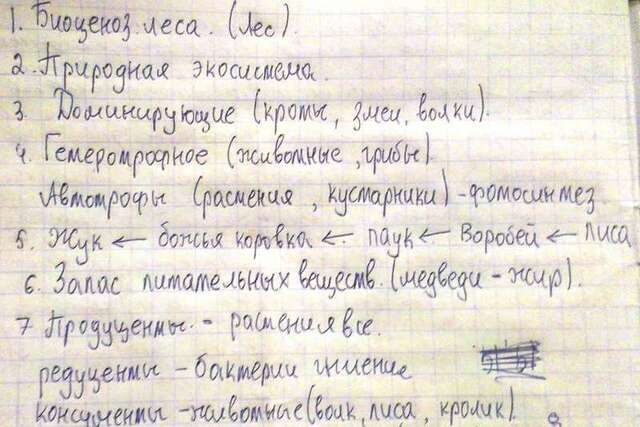 1. Биоценоз леса. (Лес).
2. Природная экосистема.
3. Доминирующие (кроты, змеи, волки).
4. Гетеротрофное (животные, грибы)
Автотрофы (растения, кустарники) - фотосинтез
5. Жук ← божья коровка ← паук ← Воробей ← лиса
6. Запас питательных веществ. (медведи - жир).
7 Продуценты. - растения все.
редуценты - бактерии гниение
консументы - животные (волк, лиса, кролик).